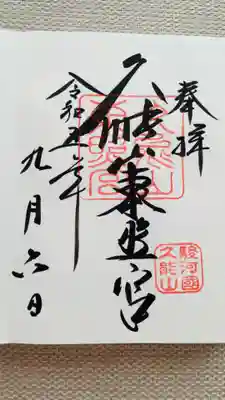 奉拝
久能山東照宮
駿河國
久能山
令和五年
九月六日